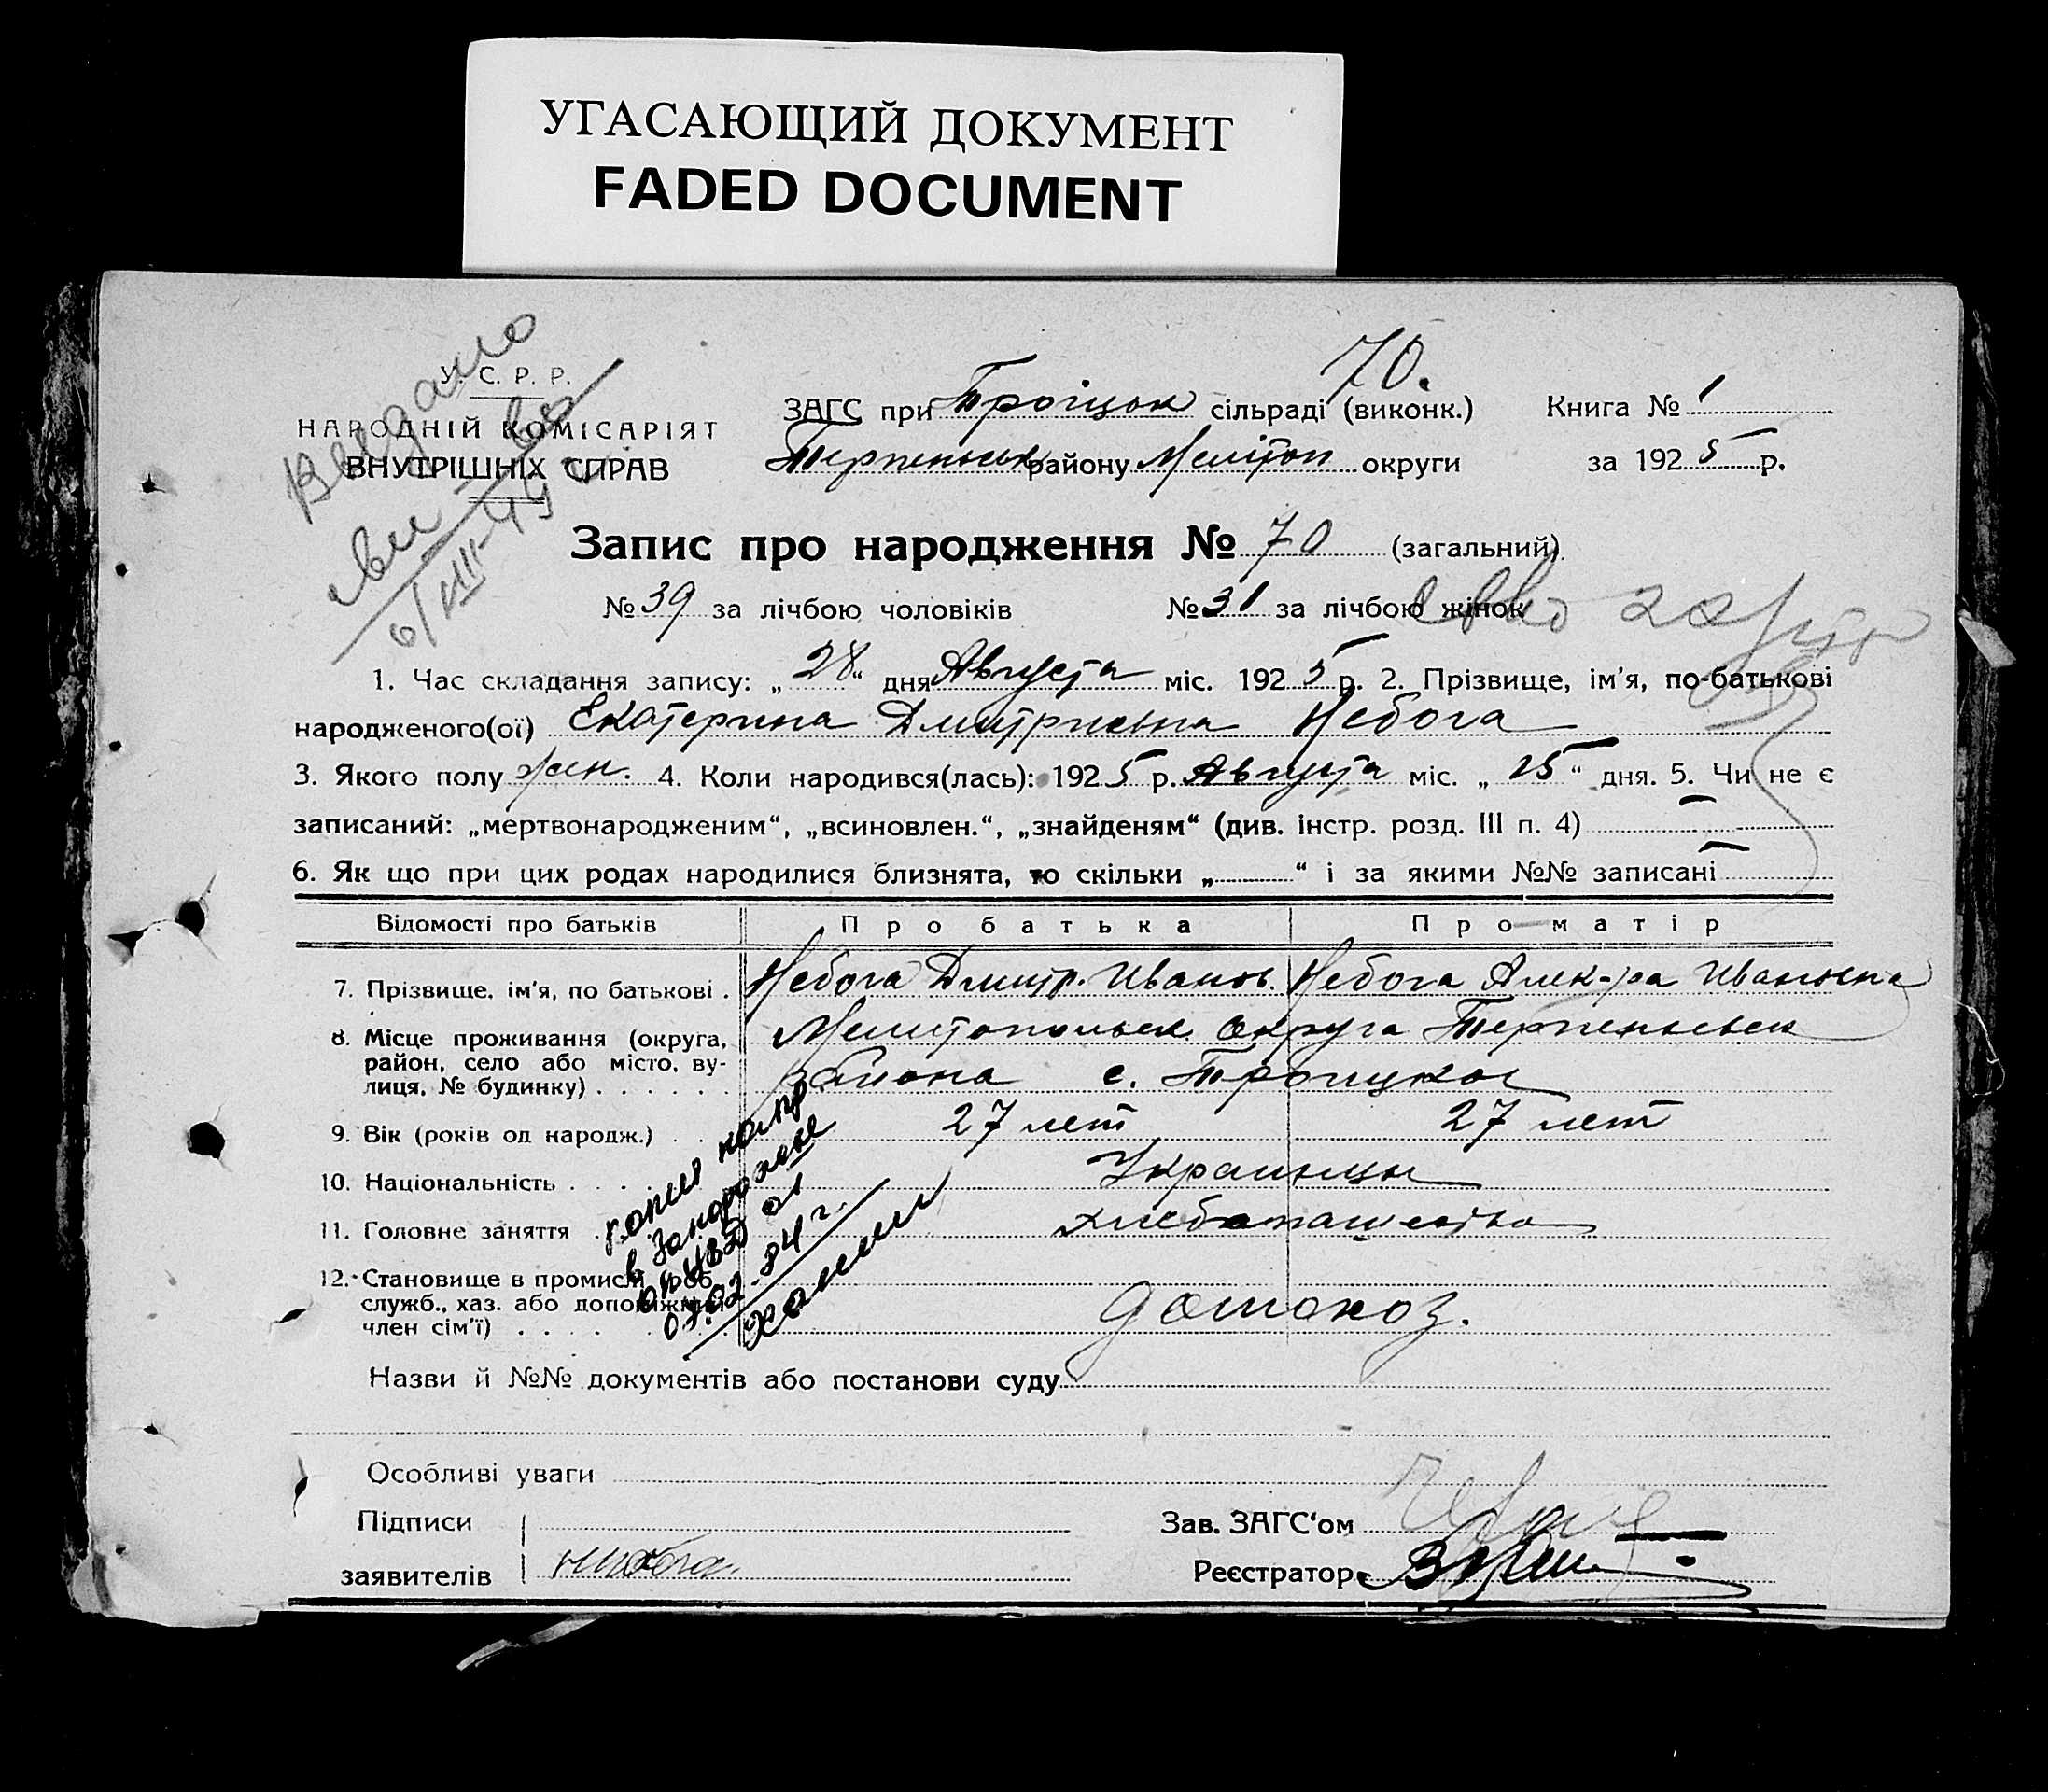 УГАСАЮЩИЙ ДОКУМЕНТ
FADED DOCUMENT
70.
У. С. Р. Р.
НАРОДНІЙ КОМІСАРІЯТ
ВНУТРІШНІХ СПРАВ
Выдано
6/VIII-49
ЗАГС при Троіцьк сільраді (виконк.) Книга № 1
Терпеньевск району Мелітоп округи за 1925 р.
Запис про народження № 70 (загальний).
№ 39 за лічбою чоловіків № 31 за лічбою жінок
1. Час складання запису: „28“ дня Августа міс. 1925 р. 2. Прізвище, ім'я, по-батькові
народженого(ої) Екатерина Дмитриевна Небога
3. Якого полу жен. 4. Коли народився(лась): 1925 р. Августа міс. „25“ дня. 5. Чи не є
записаний: „мертвонародженим“, „всиновлен.“, „знайденям“ (див. інстр. розд. III п. 4) —
6. Як що при цих родах народилися близнята, то скільки „ “ і за якими №№ записані —
Відомості про батьків Про батька Про матір
7. Прізвище, ім'я, по батькові . Небога Дмитр. Иванов. Небога Алек-ра Ивановна
8. Місце проживання (округа, Мелитопольск округа Терпеньевск
район, село або місто, ву-
лиця, № будинку) . . . . . . района с. Троицкое
9. Вік (років од народж.) . . 27 лет 27 лет
10. Національність . . . . Украинцы
11. Головне заняття . . хлебопашество
12. Становище в промислі (роб.
служб., хаз. або допоміжний
член сім'ї) . . . . . . домохоз.
копия напр
в Запорожье
07.02-84 г.
Назви й №№ документів або постанови суду
Особливі уваги
Підписи
заявителів Небога
Зав. ЗАГС'ом
Реєстратор